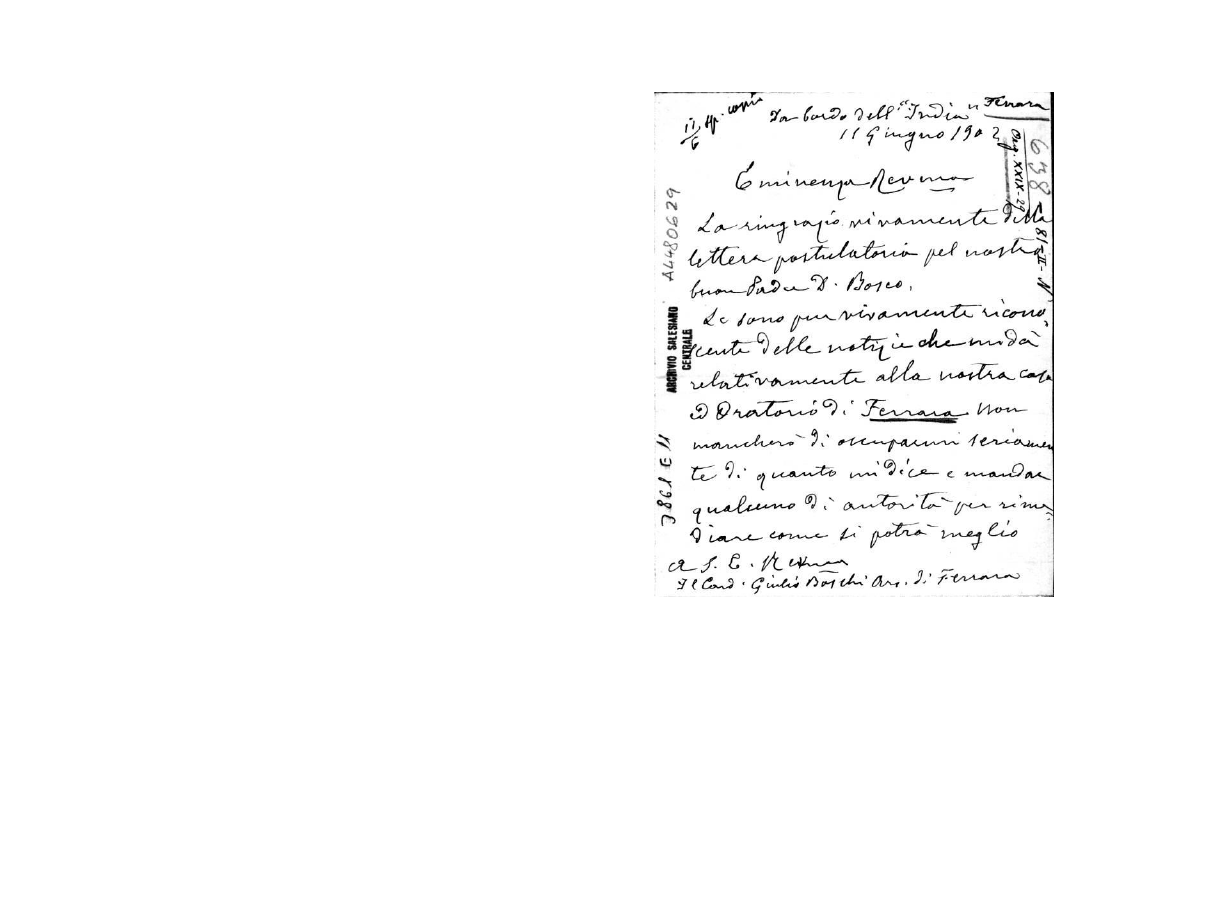 11/6 Ap. copia
Da bordo dell'"India" Ferrara
11 Giugno 1902
Eminenza Rev.ma
La ringrazio vivamente della
lettera postulatoria pel nostro
buon Padre D. Bosco.
Le sono pur vivamente ricono
scente delle notizie che mi dà
relativamente alla nostra casa
ed Oratorio di Ferrara. Non
mancherò di occuparmi seriamen
te di quanto mi dice e mandar
qualcuno di autorità per rime-
diare come si potrà meglio
A S. E. Rev.ma
Il Card. Giulio Boschi Arc. di Ferrara
638
Orig. XXIX-29
A4480629
ARCHIVIO SALESIANO
CENTRALE
3861 E 11